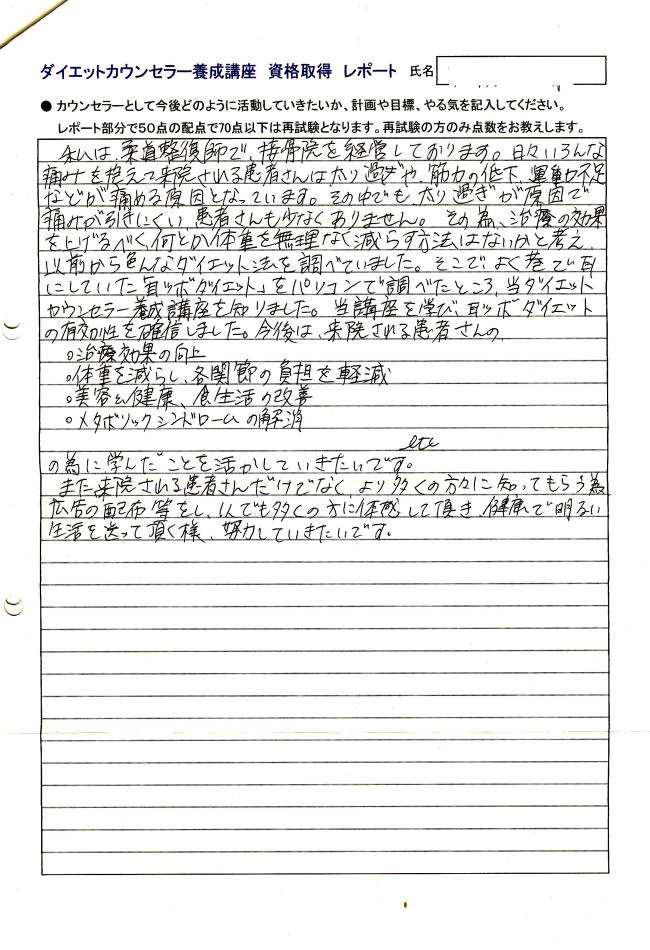 ダイエットカウンセラー養成講座 資格取得 レポート 氏名
● カウンセラーとして今後どのように活動していきたいか、計画や目標、やる気を記入してください。
レポート部分で50点の配点で70点以下は再試験となります。再試験の方のみ点数をお教えします。
私は、柔道整復師で、接骨院を経営しております。日々いろんな
痛みを抱えて来院される患者さんは、太り過ぎや、筋力の低下、運動不足
などが痛める原因となっています。その中でも、太り過ぎが原因で
痛みが引きにくい患者さんも少なくありません。その為、治療の効果
を上げるべく、何とか体重を無理なく減らす方法はないかと考え、
以前から色んなダイエット法を調べていました。そこで、よく巷で耳
にしていた「耳ツボダイエット」をパソコンで調べたところ、当ダイエット
カウンセラー養成講座を知りました。当講座を学び、耳ツボダイエット
の有効性を確信しました。今後は、来院される患者さんの、
○治療効果の向上
○体重を減らし、各関節の負担を軽減
○美容&健康、食生活の改善
○メタボリックシンドロームの解消
etc
の為に学んだことを活かしていきたいです。
また来院される患者さんだけでなく、より多くの方々に知ってもらう為
広告の配布等をし、1人でも多くの方に体感して頂き、健康で明るい
生活を送って頂く様、努力していきたいです。